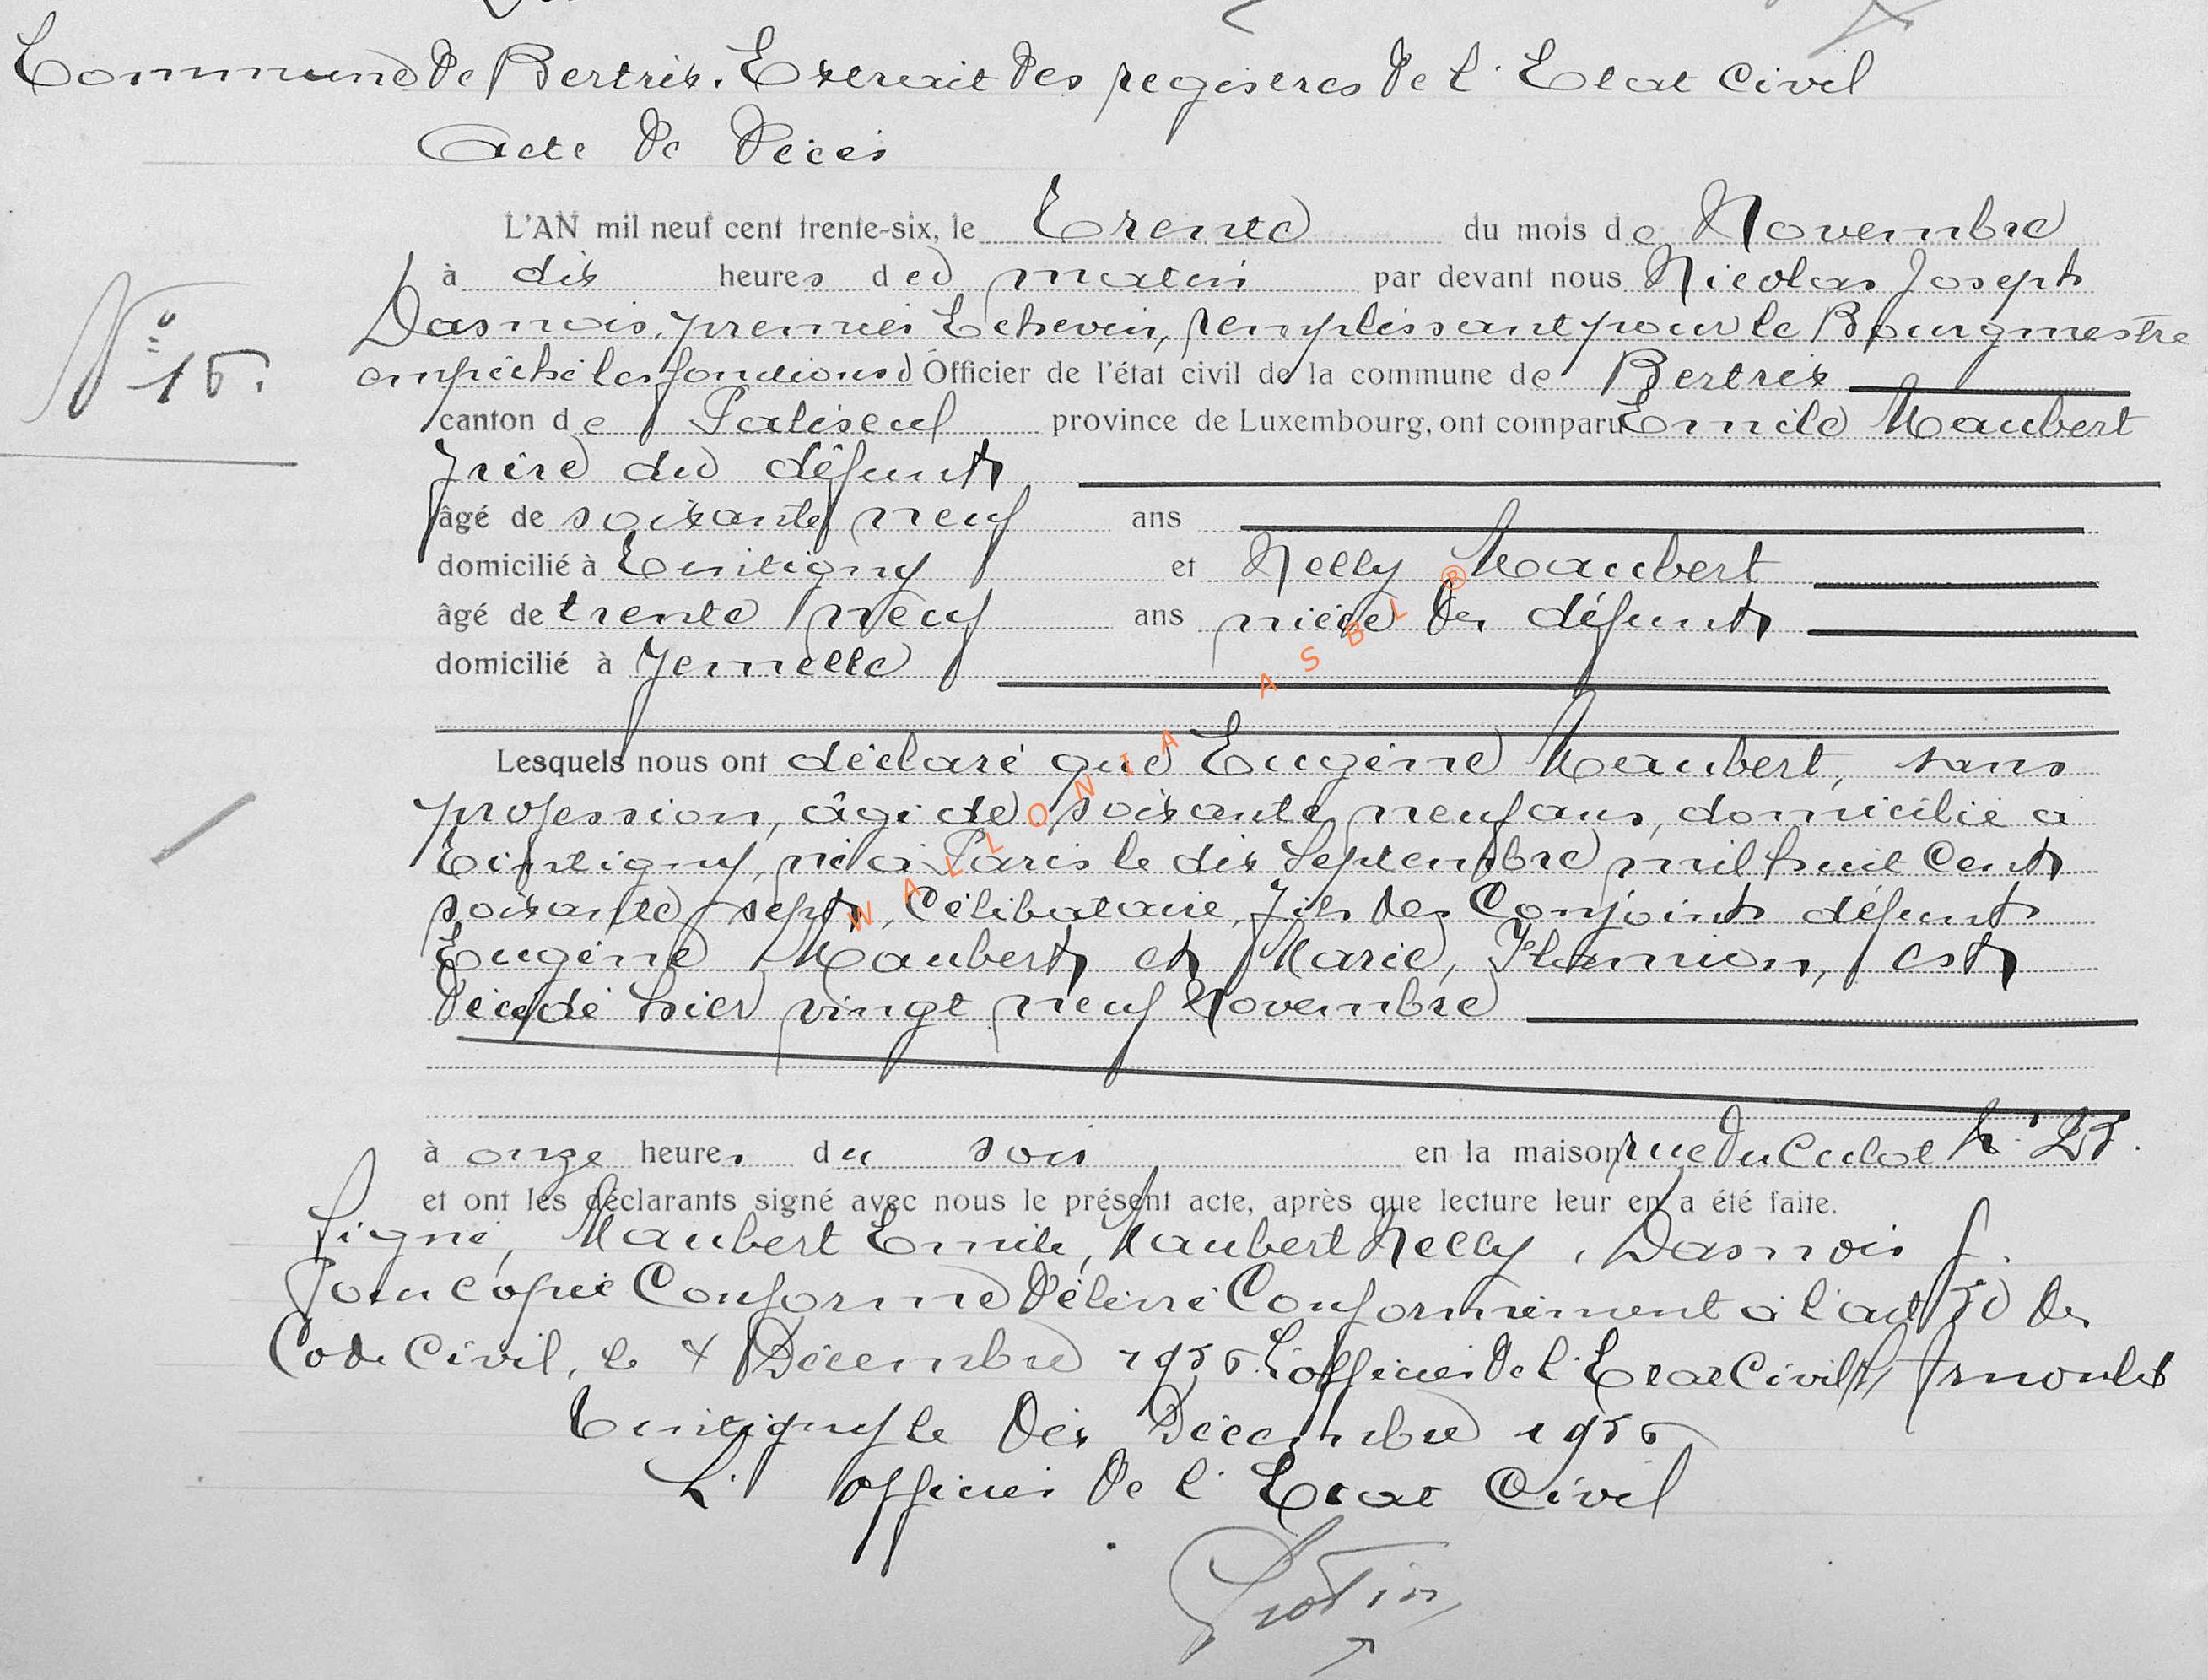 Commune de Bertrix. Extrait des registres de l'Etat Civil
Acte de Décès
L'AN mil neuf cent trente-six, le Trente du mois de Novembre
à dix heures du matin par devant nous Nicolas Joseph
Dasnois, premier Echevin, remplissant pour le Bourgmestre
N° 15.
empêché les fonctions d'Officier de l'état civil de la commune de Bertrix
canton de Paliseul province de Luxembourg, ont comparu Emile Maubert
frère du défunt
âgé de soixante neuf ans
domicilié à Tintigny et Nelly Maubert
âgé de trente neuf ans nièce du défunt
domicilié à Jemelle
Lesquels nous ont déclaré que Eugène Maubert, sans
profession, âgé de soixante neuf ans, domicilié à
Tintigny, né à Paris le dix Septembre mil huit Cent
soixante sept, Célibataire, fils des Conjoints défunts
Eugène Maubert et Marie, Flamion, est
décédé hier vingt neuf Novembre
à onze heures du soir en la maison rue du Culot N°
et ont les déclarants signé avec nous le présent acte, après que lecture leur en a été faite.
Signé, Maubert Emile, Maubert Nelly, Dasnois J.
Pour copie Conforme délivré Conformément à l'art 80 du
Code Civil, le Décembre 1936 L'officier de l'Etat Civil,
Tintigny le dix Décembre 1936
L'officier de l'Etat Civil
WALLONIA ASBL ®